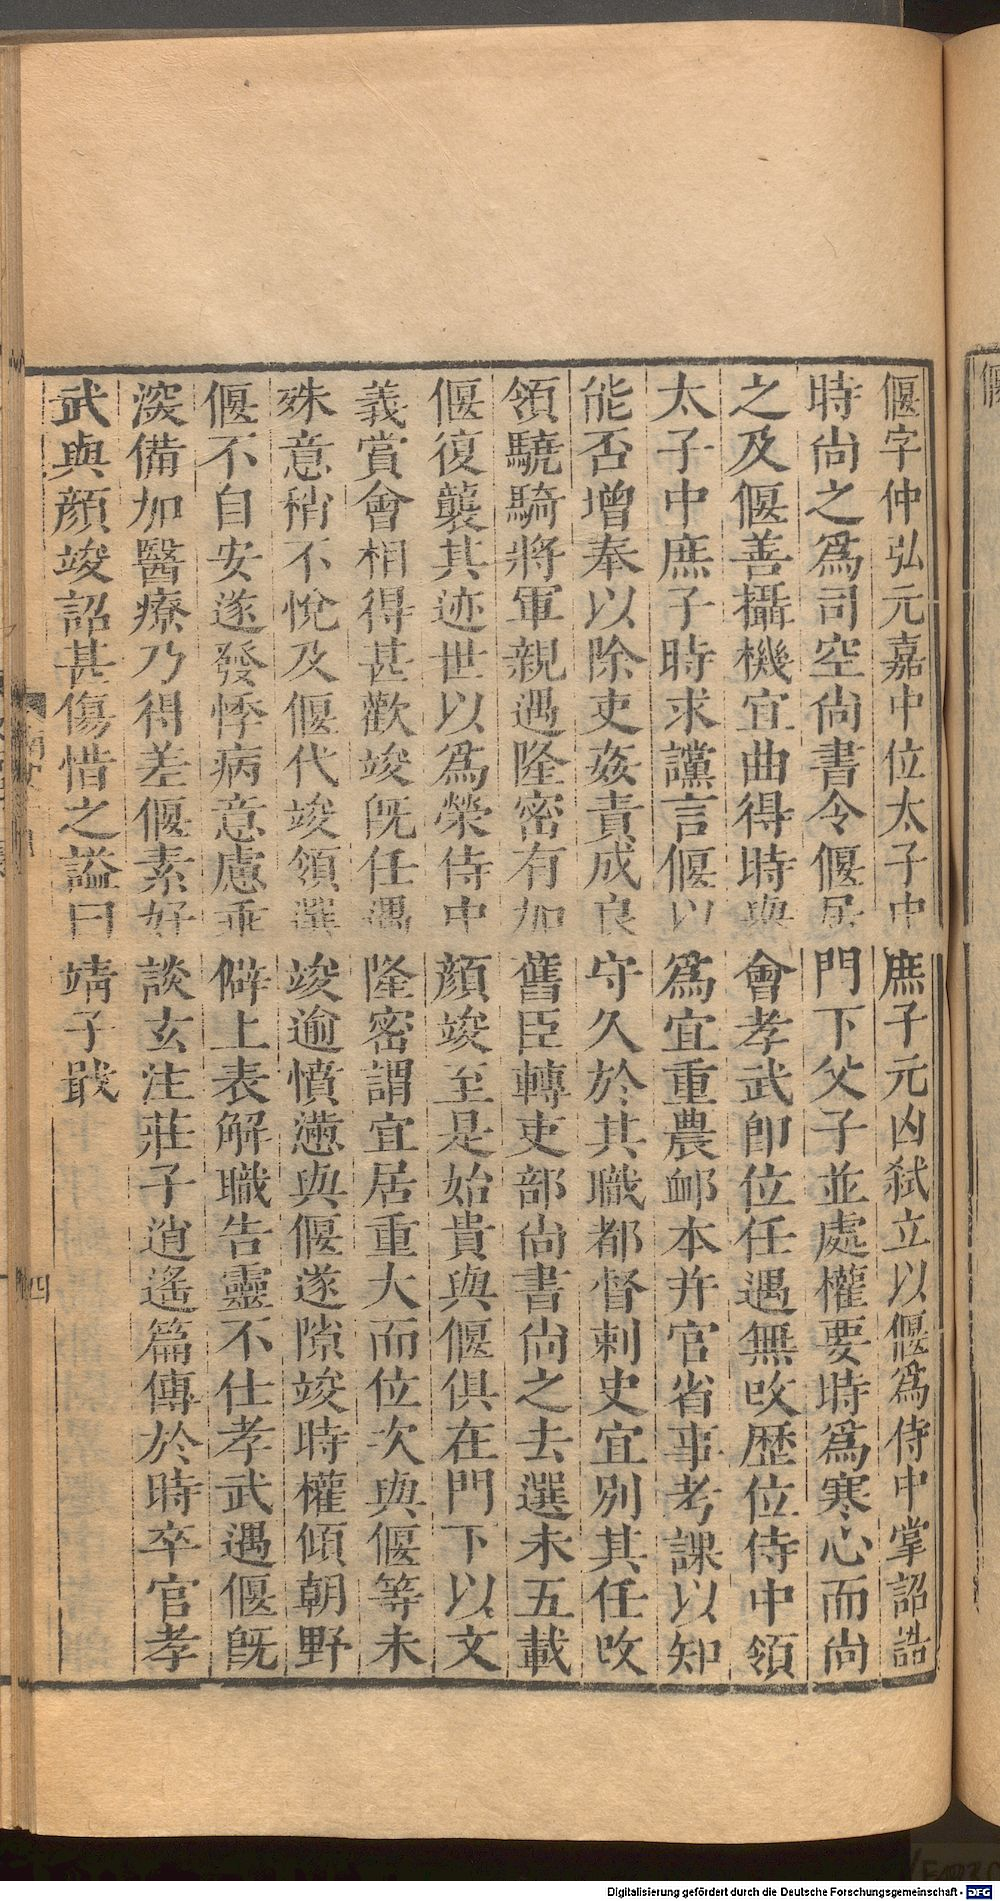 偃字仲弘元嘉中位太子中庶子元凶弑立以偃爲侍中掌詔誥
時尚之爲司空尚書令偃居門下父子並處權要時爲寒心而尚
之及偃善攝機宜曲得時與會孝武即位任遇無攺歴位侍中領
太子中庶子時求讜言偃以爲宜重農䘏本并官省事考課以知
能否增奉以除吏姦責成良守久於其職都督刺史宜別其任攺
領驍騎將軍親遇隆密有加舊臣轉吏部尚書尚之去選未五載
偃復襲其迹世以爲榮侍中顔竣至是始貴與偃俱在門下以文
義賞會相得甚歡竣旣任遇隆密謂宜居重大而位次與偃等未
殊意稍不悅及偃代竣領選竣逾憤懣與偃遂隙竣時權傾朝野
偃不自安遂發悸病意慮乖僻上表解職告靈不仕孝武遇偃旣
深備加醫療乃得差偃素好談玄注莊子逍遙篇傳於時卒官孝
武與顔竣詔甚傷惜之謚曰靖子戢
四
偃
Digitalisierung gefördert durch die Deutsche Forschungsgemeinschaft - DFG